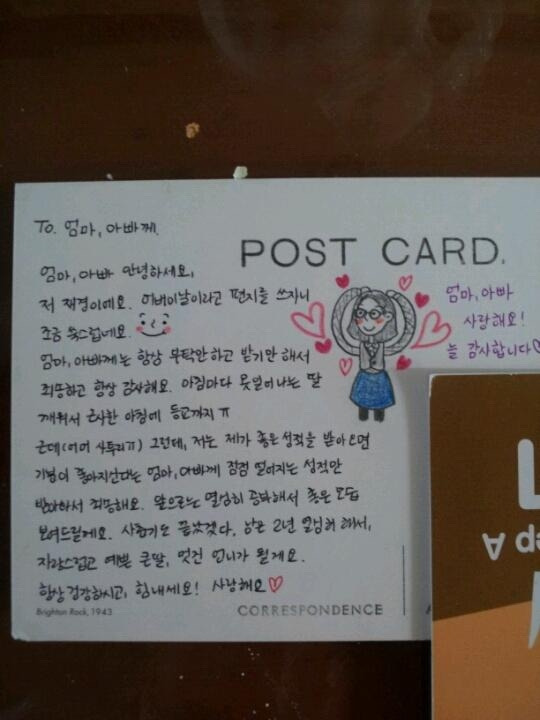 To. 엄마, 아빠께.
POST CARD.
엄마, 아빠 안녕하세요,
저 재경이예요. 어버이날이라고 편지를 쓰자니
조금 쑥스럽네요.
엄마, 아빠께는 항상 부탁만하고 받기만 해서
죄송하고 항상 감사해요. 아침마다 못일어나는 딸
깨워서 근사한 아침에 등교까지 ㅠ
근데(어머 사투리ㅠ) 그런데, 저는 제가 좋은성적을 받아오면
기분이 좋아지신다는 엄마, 아빠께 점점 떨어지는 성적만
받아와서 죄송해요. 앞으로는 열심히 공부해서 좋은 모습
보여드릴게요. 사춘기도 끝났겠다, 남은 2년 열심히 해서,
자랑스럽고 예쁜 큰딸, 멋진 언니가 될게요.
항상 건강하시고, 힘내세요! 사랑해요♡
엄마, 아빠
사랑해요!
늘 감사합니다♡
Brighton Rock, 1943
CORRESPONDENCE